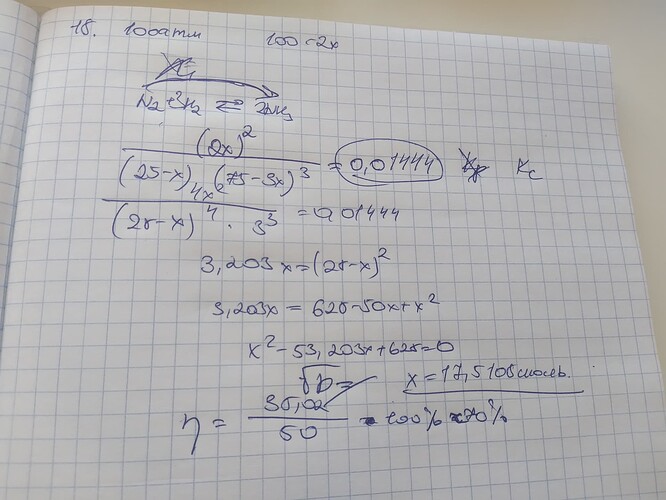 18. 100атм 100-2x
N₂+3H₂ ⇌ 2NH₃
(2x)²
(25-x) (75-3x)³ = 0,01444 Kc
4x²
(25-x)⁴ · 3³ = 0,01444
3,203x=(25-x)²
3,203x = 625-50x+x²
x²-53,203x+625=0
√D= x=17,5106 моль.
η = 35,02 / 50 · 100% = 70%